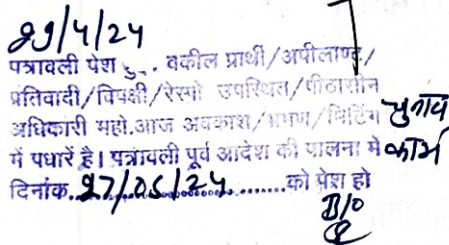 29/4/24
पत्रावली पेश हुई. वकील प्रार्थी/अपीलाण्ट/
प्रतिवादी/विपक्षी/रेस्पो उपस्थित/पीठासीन
अधिकारी महो.आज अवकाश/भ्रमण/मिटिंग चुनाव
में पधारें है। पत्रावली पूर्व आदेश की पालना में कार्य
दिनांक..27/05/24..........को पेश हो
B/O